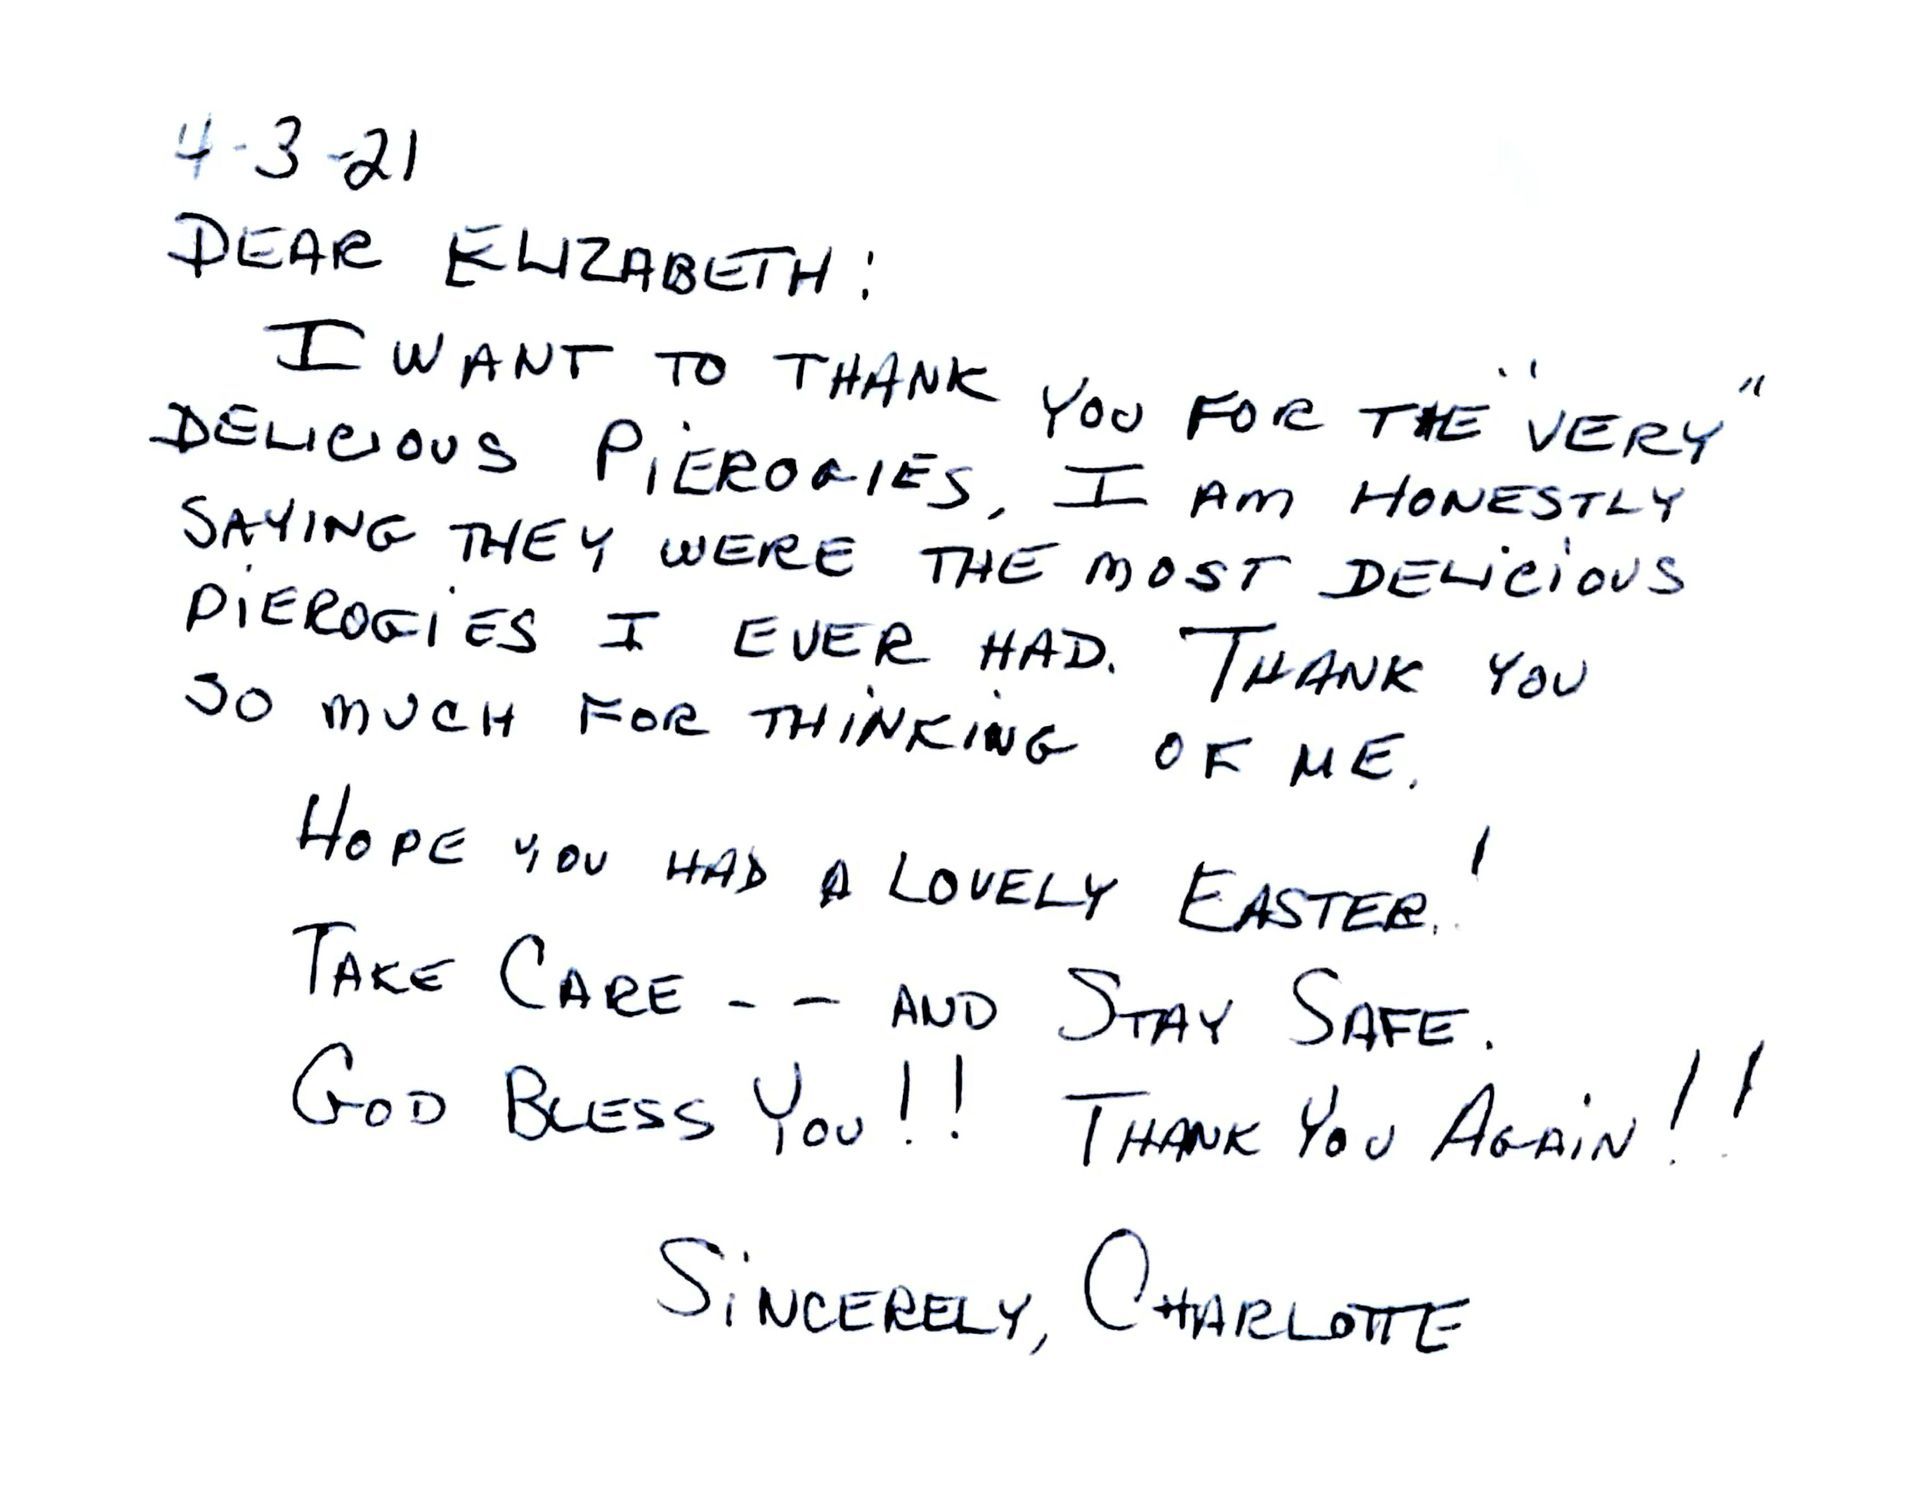 4-3-21
DEAR ELIZABETH:
I WANT TO THANK YOU FOR THE "VERY"
DELICIOUS PIEROGIES, I AM HONESTLY
SAYING THEY WERE THE MOST DELICIOUS
PIEROGIES I EVER HAD. THANK YOU
SO MUCH FOR THINKING OF ME.
HOPE YOU HAD A LOVELY EASTER!
TAKE CARE -- AND STAY SAFE.
GOD BLESS YOU!! THANK YOU AGAIN!!
SINCERELY, CHARLOTTE